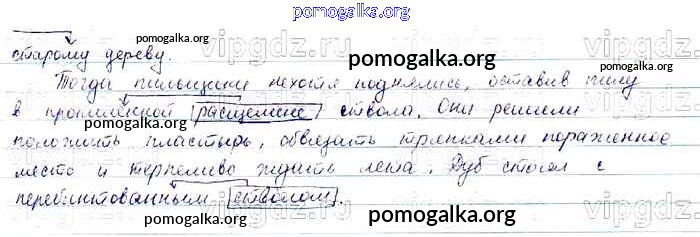 pomogalka.org
старому дереву.
pomogalka.org
vipgdz.ru
pomogalka.org
Тогда пильщики нехотя поднялись, оставив пилу
в пропиленной расщелине ствола. Они решили
положить пластырь, обвязать тряпками пораженное
место и терпеливо ждать лета. Дуб стоял с
перебинтованным стволом.
pomogalka.org
vipgdz.ru
pomogalka.org
pomogalka.org